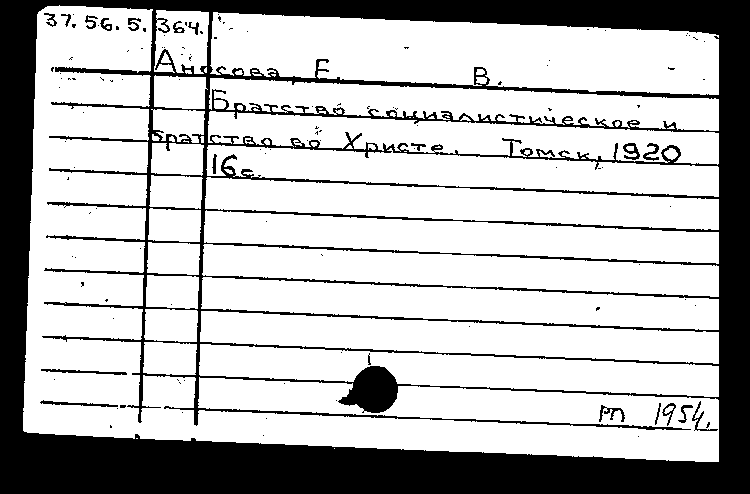 37.56.5.364.
Аносова, Е. В.
Братство социалистическое и
братство во Христе. Томск, 1920
16с.
рп 1954.